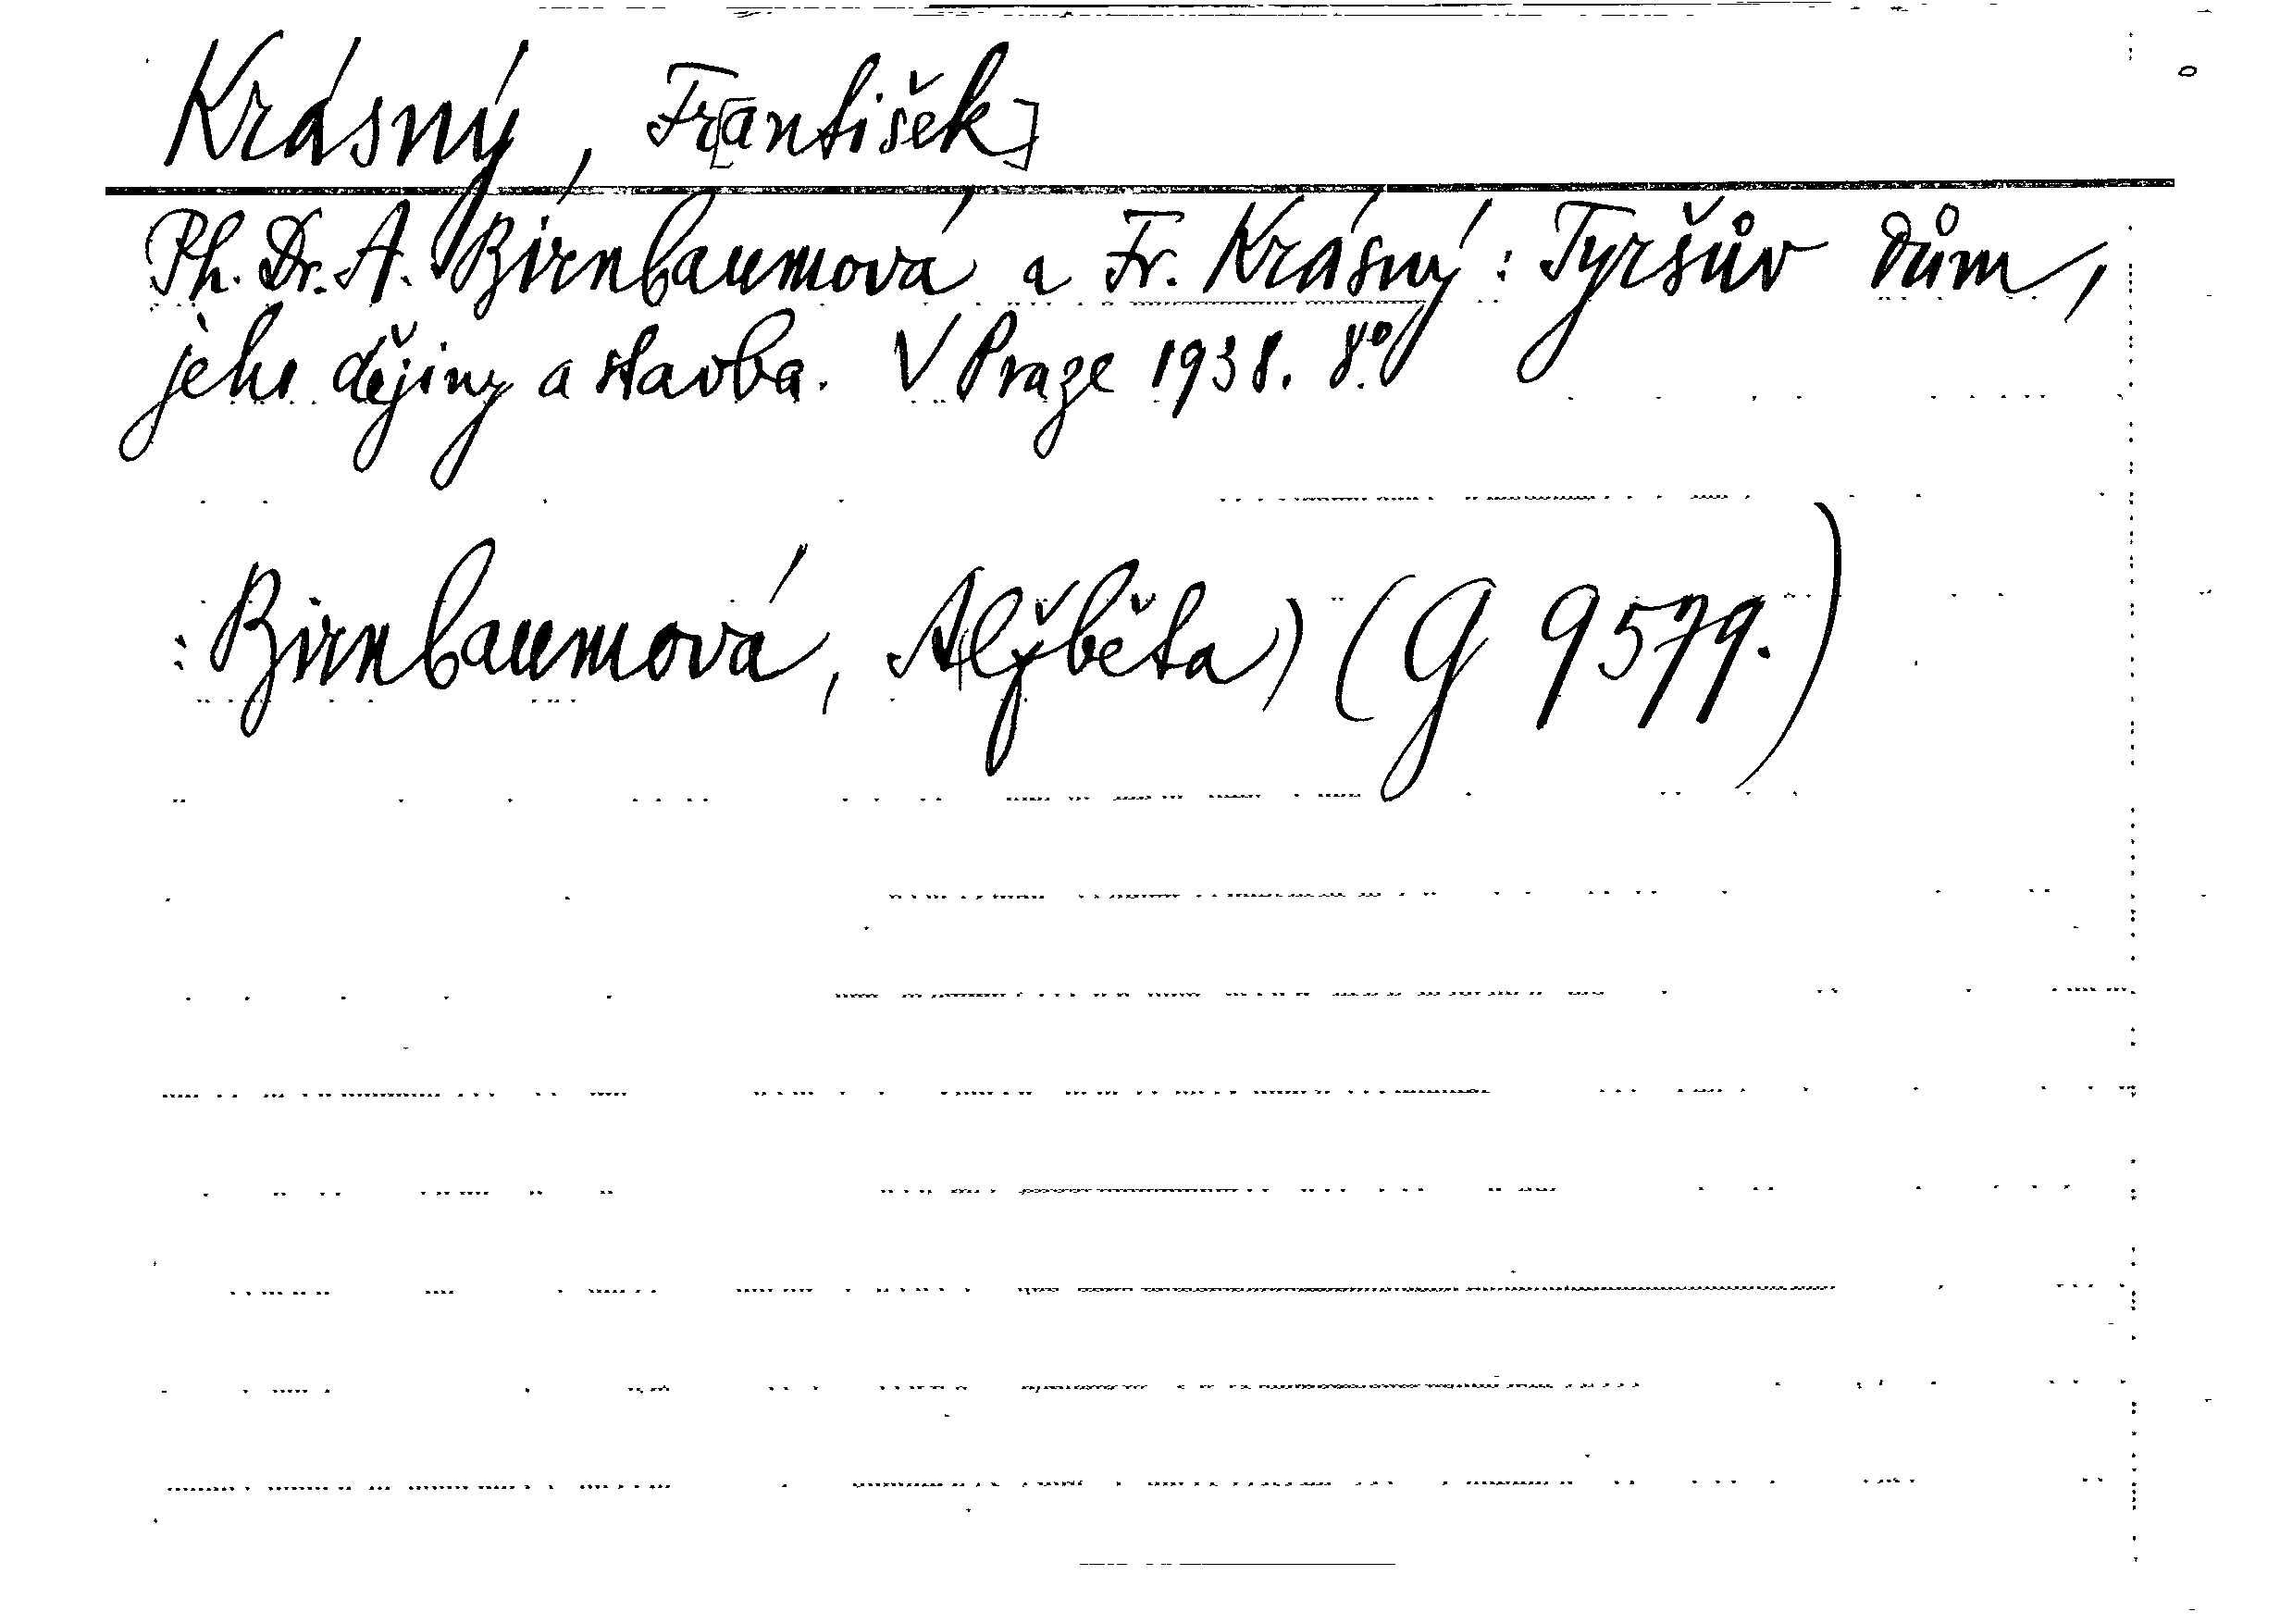 Krásný, Fr[antišek]
Ph. Dr. A. Birnbaumová a Fr. Krásný: Tyršův dům,
jeho dějiny a stavba. V Praze 1938. 8.°
: Birnbaumová, Alžběta) (G 9579.)